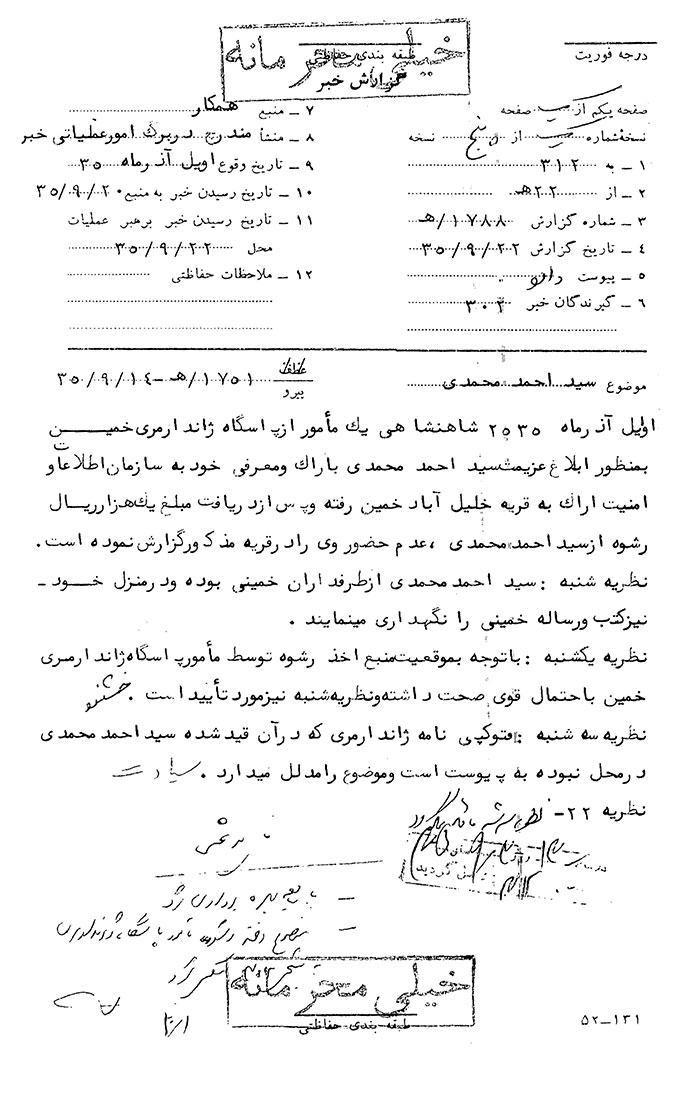 خیلی محرمانه
طبقه بندی حفاظتی
گزارش خبر
درجه فوریت
صفحه یکم از یک صفحه
نسخه شماره یک از پنج نسخه
۱ ـ به ۳۱۲
۲ ـ از ۲۲ هـ
۳ ـ شماره گزارش ۱۷۸۸/هـ
۴ ـ تاریخ گزارش ۳۵/۹/۲۲
۵ ـ پیوست دارد
۶ ـ گیرندگان خبر ۳۰۲
۷ ـ منبع همکار
۸ ـ منشأ مندرج در برگ امور عملیاتی خبر
۹ ـ تاریخ وقوع اویل آذرماه ۳۵
۱۰ ـ تاریخ رسیدن خبر به منبع ۳۵/۹/۲۰
۱۱ ـ تاریخ رسیدن خبر برهبر عملیات
محل ۳۵/۹/۲۲
۱۲ ـ ملاحظات حفاظتی
موضوع سید احمد محمدی
عطف
پیرو ۱۷۵۱/هـ ـ ۳۵/۹/۱۴
اویل آذرماه ۲۵۳۵ شاهنشاهی یك مأمور از پاسگاه ژاندارمری خمین
بمنظور ابلاغ عزیمت سید احمد محمدی باراك ومعرفی خود به سازمان اطلاعات و
امنیت اراك به قریه خلیل آباد خمین رفته وپس از دریافت مبلغ یك هزارریال
رشوه از سید احمد محمدی ،عدم حضور وی رادرقریه مذکور گزارش نموده است.
نظریه شنبه : سید احمد محمدی ازطرفداران خمینی بوده ودرمنزل خود ـ
نیز کتب ورساله خمینی را نگهداری مینمایند .
نظریه یکشنبه : باتوجه بموقعیت منبع اخذ رشوه توسط مأمور پاسگاه ژاندارمری
خمین باحتمال قوی صحت داشته ونظریه شنبه نیزمورد تأیید است .
نظریه سه شنبه : فتوکپی نامه ژاندارمری که درآن قید شده سید احمد محمدی
درمحل نبوده به پیوست است وموضوع رامدلل میدارد .
نظریه ۲۲-
خیلی محرمانه
طبقه بندی حفاظتی
۵۲ـ۱۳۱